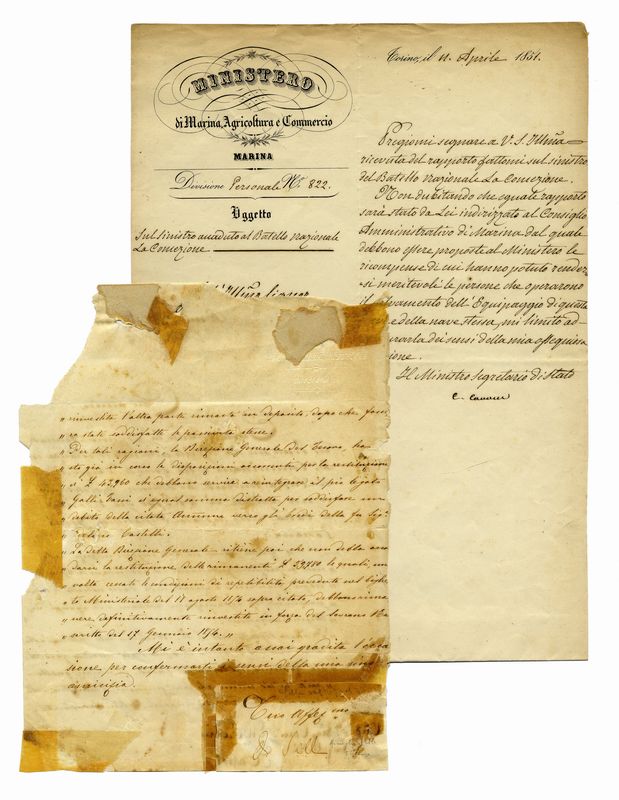 MINISTERO
di Marina, Agricoltura e Commercio
MARINA
Divisione Personale N.º 822.
Oggetto
Sul sinistro accaduto al Batello nazionale
La Concezione
Torino, il 11. Aprile 1851.
Pregiomi segnare a V. S. Illma
ricevuta del rapporto fattomi sul sinistro
del Batello nazionale La Concezione.
Non dubitando che eguale rapporto
sarà stato da Lei indirizzato al Consiglio
Amministrativo di Marina dal quale
debbono essere proposte al Ministero le
ricompense di cui hanno potuto render
si meritevoli le persone che operarono
il salvamento dell'Equipaggio di queste
e della nave stessa, mi limito ad
dei sensi della mia ossequiosa
ione.
Il Ministro Segretario di Stato
C. Cavour
Illmo Signor
" rinvestita l'altra parte rimasta in deposito, dopo che
" ro stati soddisfatti le passività stesse.
" Per tali ragioni, la Direzione Generale del Tesoro, ha
" già in corso le disposizioni occorrenti per la restituzione
" £ 43,960 che debbono servire a reintegrare
" somma distratta per soddisfare un
" debito della citata Comune verso gli Eredi della fu Sig.ª
" Castelli.
" La detta Direzione Generale ritiene poi che non debba
" darsi la restituzione delle rimanenti £ le quali, una
" volta cessate le condizioni di
" to Ministeriale del 17 agosto 1874 sopra citato,
" vere definitivamente investite in forza del Sovrano Re
" scritto del 17 Gennaio
Mi è intanto assai gradita l'occa
sione per confermarti i sensi della mia
amicizia.
Tuo Affez.mo